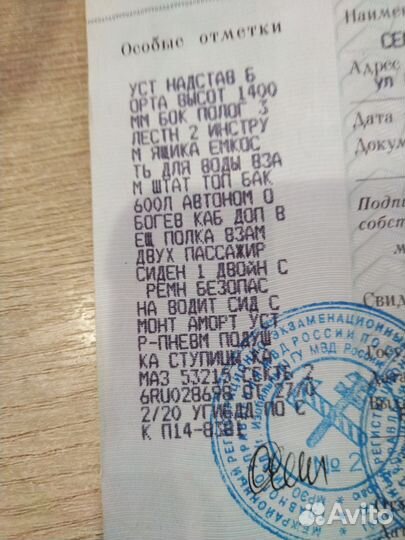 Особые отметки
УСТ НАДСТАВ Б
ОРТА ВЫСОТ 1400
ММ БОК ПОЛОГ 3
ЛЕСТН 2 ИНСТРУ
М ЯЩИКА ЕМКОС
ТЬ ДЛЯ ВОДЫ ВЗА
М ШТАТ ТОП БАК
600Л АВТОНОМ О
БОГЕВ КАБ ДОП В
ЕЩ ПОЛКА ВЗАМ
ДВУХ ПАССАЖИР
СИДЕН 1 ДВОЙН С
РЕМН БЕЗОПАС
НА ВОДИТ СИД С
МОНТ АМОРТ УСТ
Р-ПНЕВМ ПОДУШ
КА СТУПИЦЫ КА
МАЗ 53215
2/20 УГИБДД ПО С
К П14-8581
Наимен
СЕ
Адрес
ул
Дата
Докум
Подпи
собст
м
Свид
№ 2
Avito